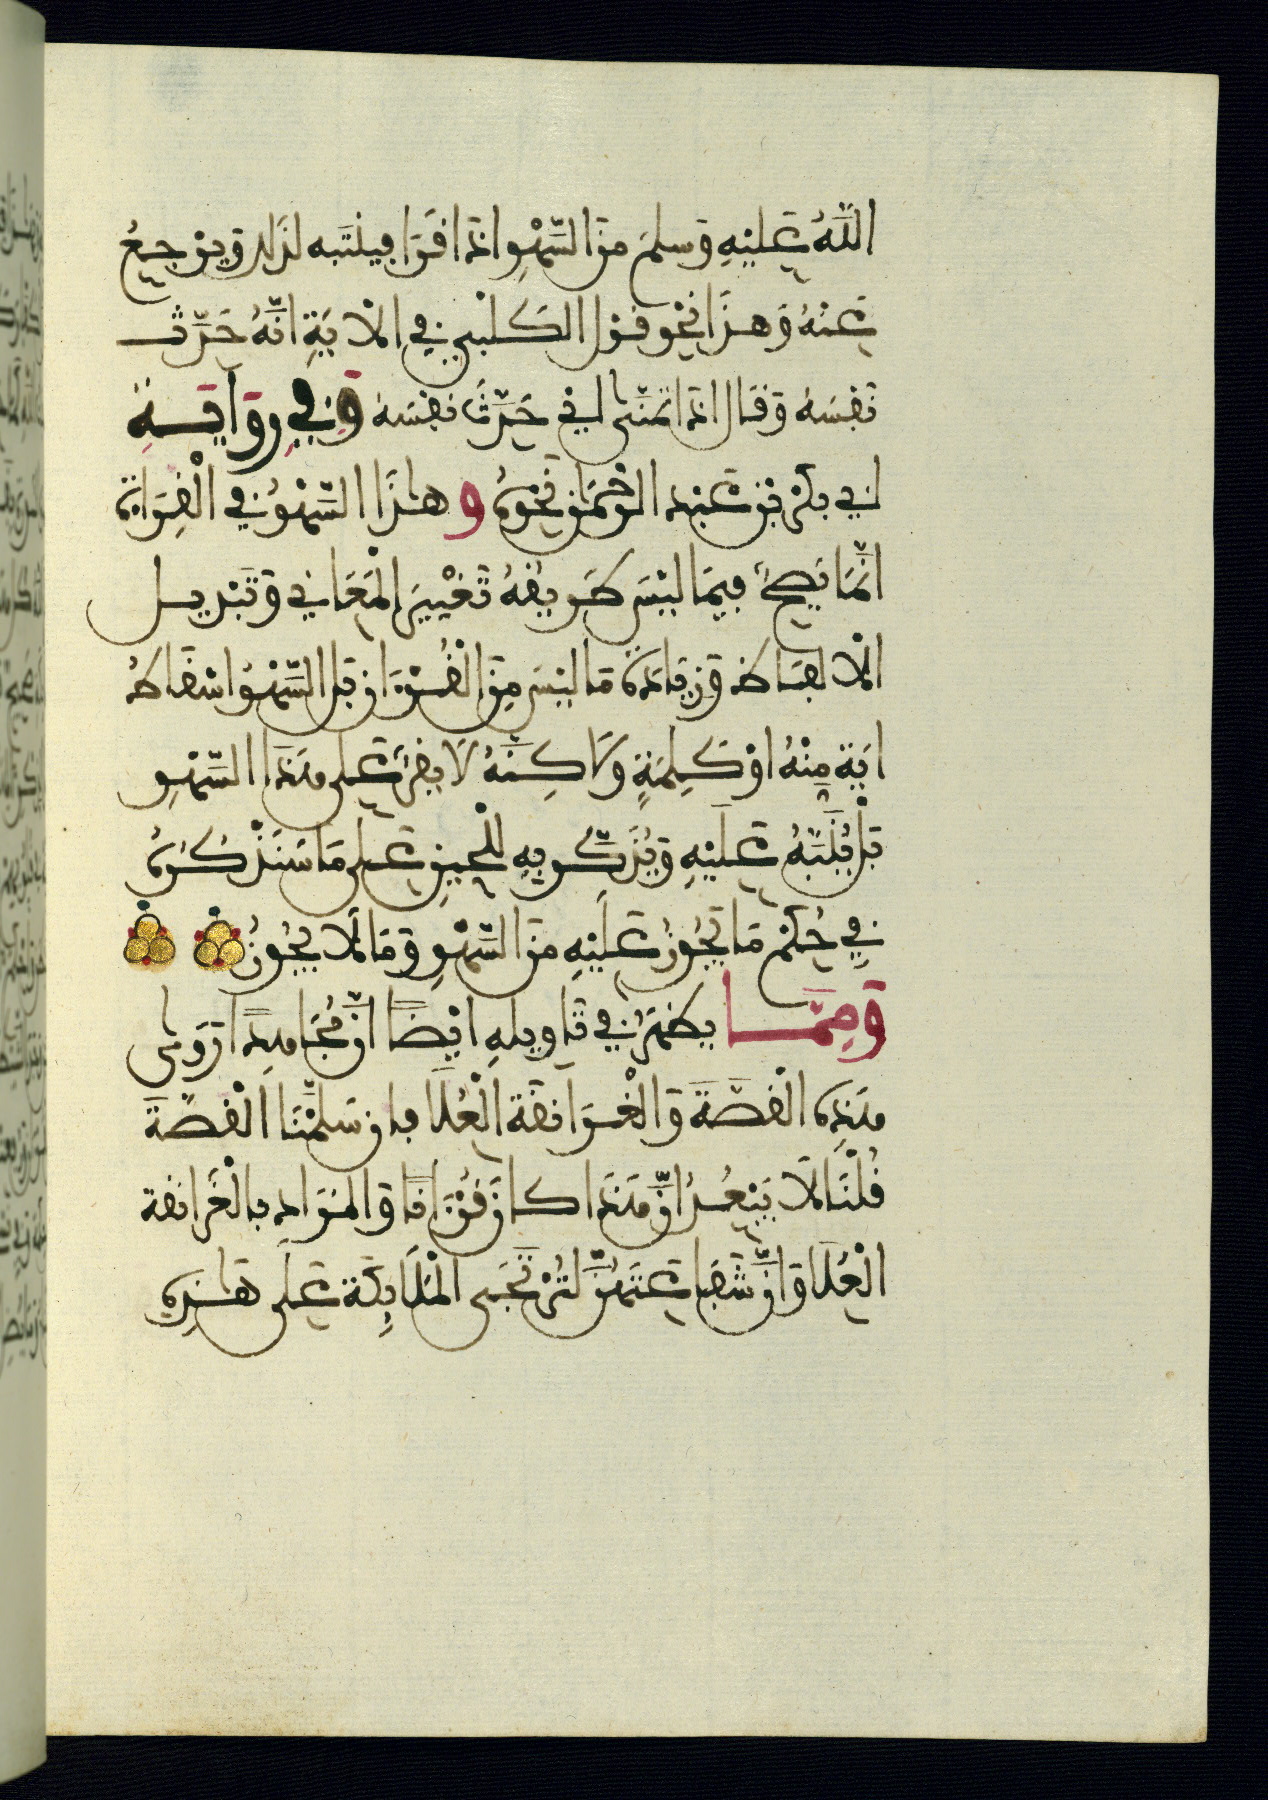 اللَّهُ عَلَيْهِ وَسلمَ مِنَ السَّهْوِ اذَا قرَا فينتبه لذلك وَيرجعُ
عَنْهُ وَهذَا نَحْو قول الكَلْبي في الْايَةِ انَّهُ حَدَّث
نَفسَهُ وَقال اذا تمنَّى اي حَدَّثَ نفسَه وَفي رِوَايةِ
ابي بكْر بْن عَبْد الرحْمَان نَحْوهُ وهَاذَا السَّهْوُ في الْقِرَاءة
انَّمَا يَصِحُّ فيمَا ليْسَ طَريقُهُ تَغْييرَ الْمَعَاني وَتَبْديل
الْالفاظ وَزيَادةَ مَا ليْسَ مِنَ الْقُرْءان بَل السَّهْوُ اسْقَاطُ
ايَة مِنْهُ اوْ كَلِمَةٍ وَلَاكِنَّهُ لَا يقرُّ عَلى هَذَا السَّهْوِ
بَلْ يُنَبَّهُ عَلَيْهِ وَيُذَكَّر بهِ لِلْحِينِ عَلى مَا سَنَذْكُرُهُ
في حُكْم مَا يَجُوزُ عَلَيْهِ منَ السَّهْوِ وَمَا لَا يَجُوزُ
وَممَّا يظهَرُ في تَاويلهِ ايْضًا انَّ مُجَاهدًا رَوَى
هَذِهِ الْقصَّةَ وَالْغَرَانقَة الْعُلَا فان سَلَّمْنَا الْقصَّةَ
قُلْنَا لَا يَبْعُدُ انَّ هَذَا كانَ قُرْءَانًا وَالمُرَاد بالْغَرَانقة
الْعُلَا وَانَّ شَفَاعَتَهُنَّ لَتُرْتَجَى الْمَلَائِكَة عَلَى هَاذِهِ